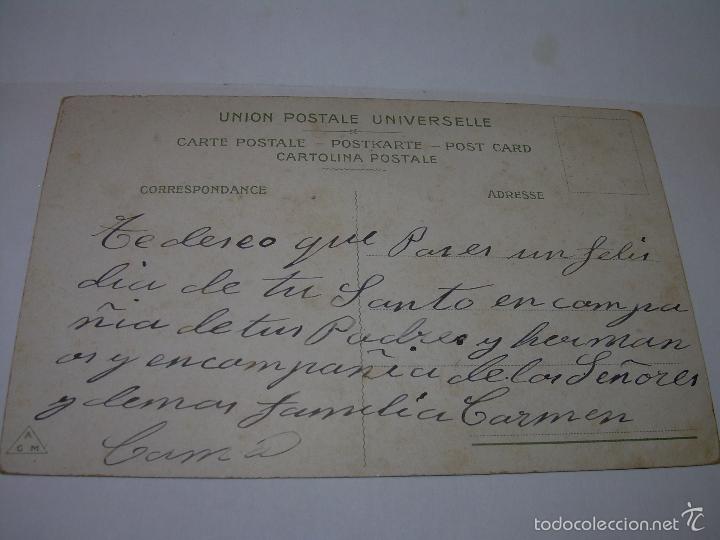 UNION POSTALE UNIVERSELLE
CARTE POSTALE - POSTKARTE - POST CARD
CARTOLINA POSTALE
CORRESPONDANCE ADRESSE
Te deseo que Pases un felis
dia de tu Santo en compa
ñia de tus Padres y herman
os y en compañia de los Señores
y demas familia Carmen
A
G M
todocoleccion.net